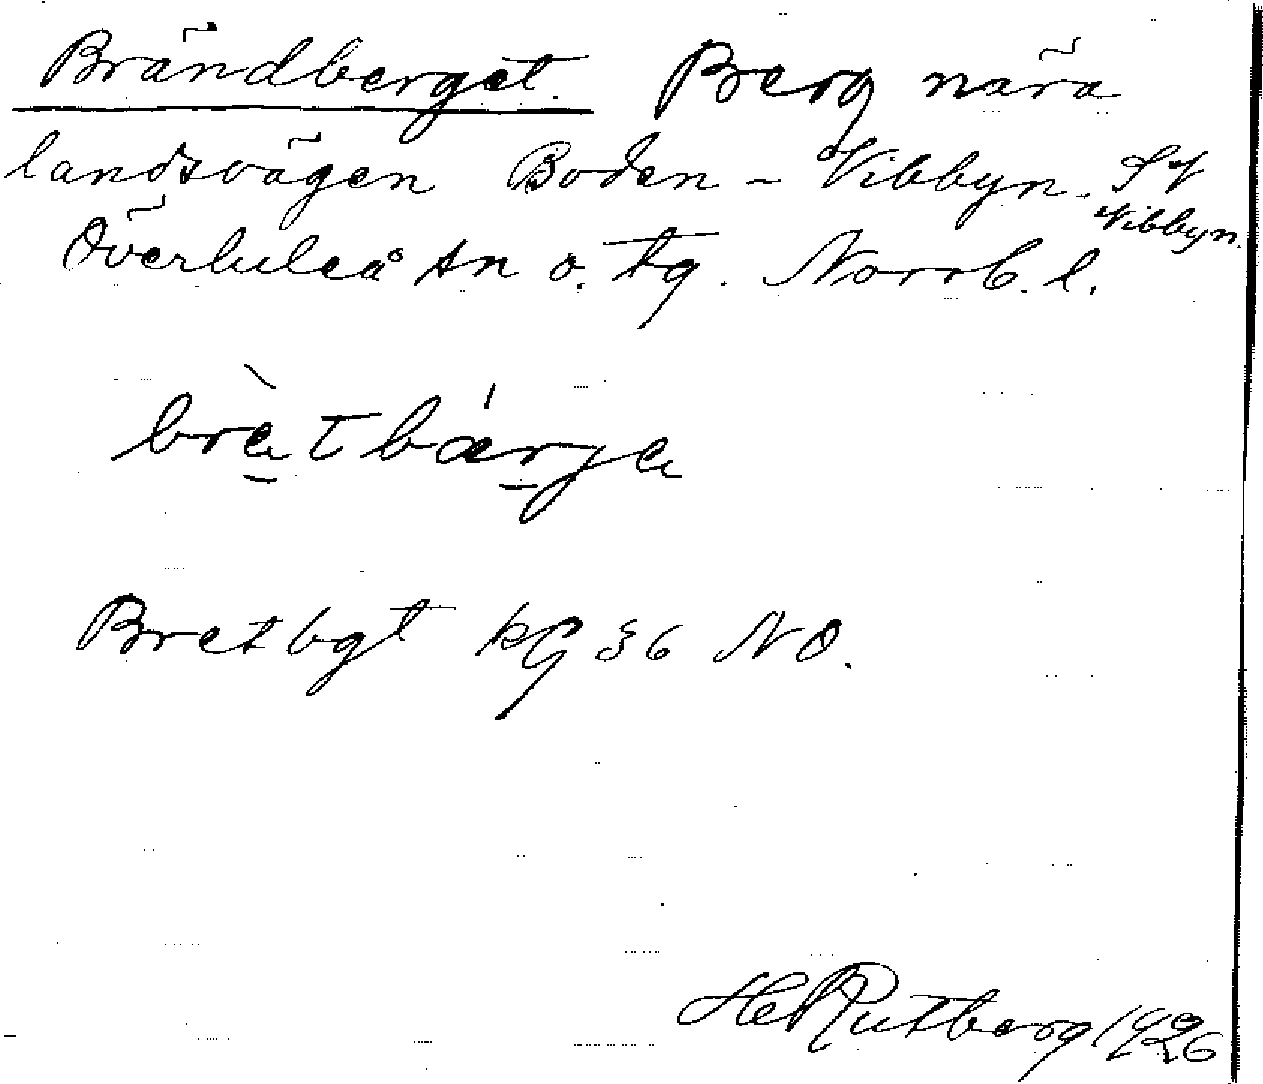 Brändberget. Berg nära
landsvägen Boden - Vibbyn. SV
Vibbyn.
Överluleå sn o. tg. Norrb. l.
brètbǽrje
Bretbgt kg 36 NO.
Rutberg 1926